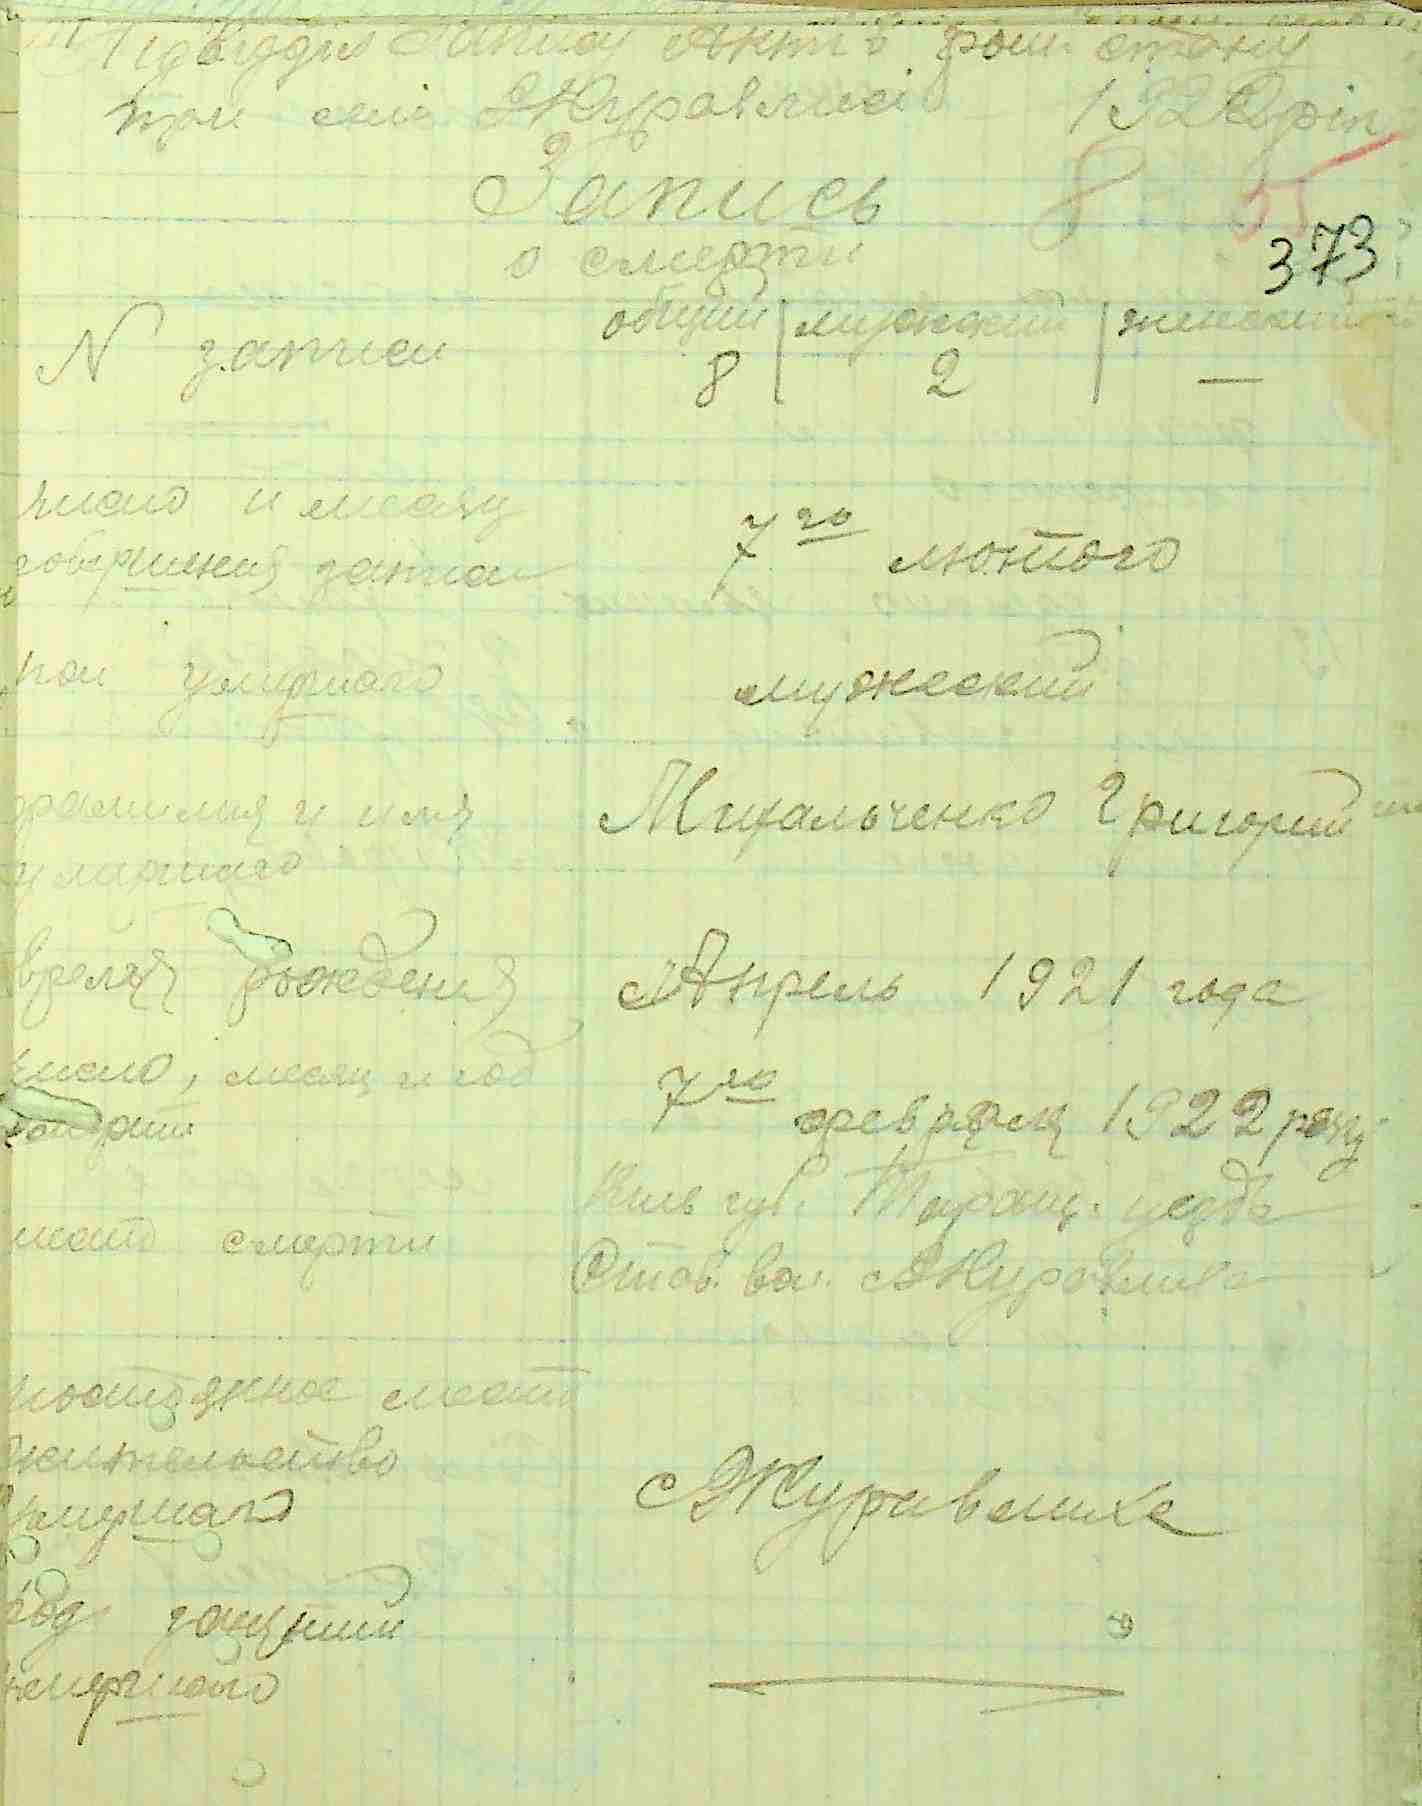 Підвідділ Записи Актів гром. стану
при селі Журавлисі 1922 рік
8 55
Запись
о смерти
373
общий | мужский | женский
N записи 8 2 —
число и месяц
совершения записи
7го лютого
пол умершого мужеский
фамилия и имя
умаршаго
Михальченко Григорий
время рождения Апрель 1921 года
число, месяц и год
7го февраля 1922 року
место смерти
Киев губ. Таращ. уезда
Став. вол. Журавлиха
постоянное место
жительство
умершаго
Журавлихе
род занятий
умершого